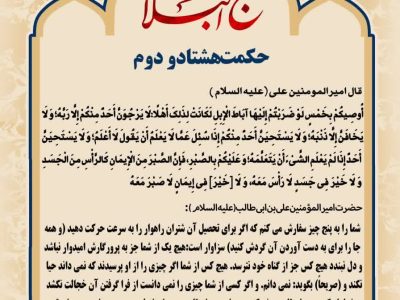 نهج البلاغه
حکمت هشتاد و دوم
قال امیرالمومنین علی (علیه السلام)
أُوصِيكُمْ بِخَمْسٍ لَوْ ضَرَبْتُمْ إِلَيْهَا آبَاطَ الْإِبِلِ لَكَانَتْ لِذَلِكَ أَهْلًا: لَا يَرْجُوَنَّ أَحَدٌ مِنْكُمْ إِلَّا رَبَّهُ؛ وَ لَا
يَخَافَنَّ إِلَّا ذَنْبَهُ؛ وَ لَا يَسْتَحِيَنَّ أَحَدٌ مِنْكُمْ إِذَا سُئِلَ عَمَّا لَا يَعْلَمُ أَنْ يَقُولَ لَا أَعْلَمُ؛ وَ لَا يَسْتَحِيَنَّ
أَحَدٌ إِذَا لَمْ يَعْلَمِ الشَّيْءَ، أَنْ يَتَعَلَّمَهُ؛ وَ عَلَيْكُمْ بِالصَّبْرِ، فَإِنَّ الصَّبْرَ مِنَ الْإِيمَانِ كَالرَّأْسِ مِنَ الْجَسَدِ
وَ لَا خَيْرَ فِي جَسَدٍ لَا رَأْسَ مَعَهُ، وَ لَا [خَيْرَ] فِي إِيمَانٍ لَا صَبْرَ مَعَهُ
حضرت امیرالمؤمنین علی بن ابی طالب (علیه السلام):
شما را به پنج چیز سفارش می کنم که اگر برای تحصیل آن شتران راهوار را به سرعت حرکت دهید (و همه
جا را برای به دست آوردن آن گردش کنید) سزاوار است: هیچ یک از شما جز به پروردگارش امیدوار نباشد
و دل نبندد هیچ کس جز از گناه خود نترسد. هیچ کس از شما اگر چیزی را از او پرسیدند که نمی داند حیا
نکند و (صریحاً) بگوید: نمی دانم. و اگر کسی از شما چیزی را نمی دانست از فرا گرفتن آن خجالت نکشد